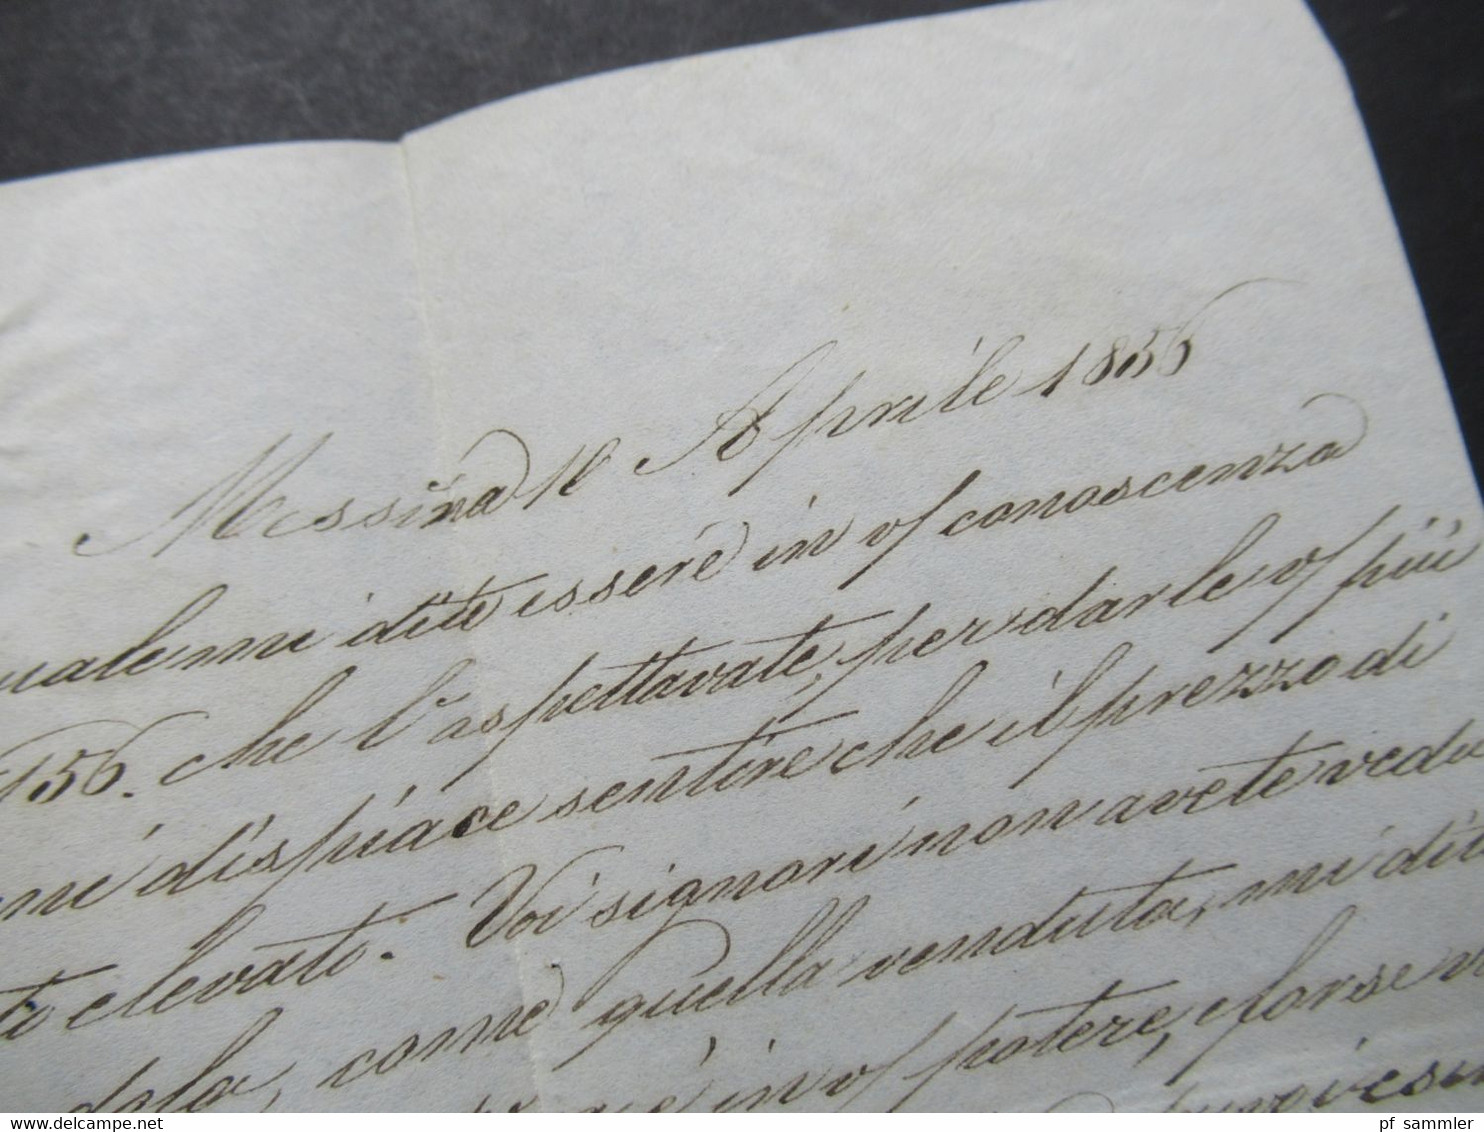 Messina 10 Aprile 1856
quale mi dite essere in vs conoscenza
156. che l'aspettavate, per darle vs più
mi dispiace sentire che il prezzo di
elevato. Voi signori non avete vedu
come quella venduta, mi dite
in vs potere, forse
pf sammler